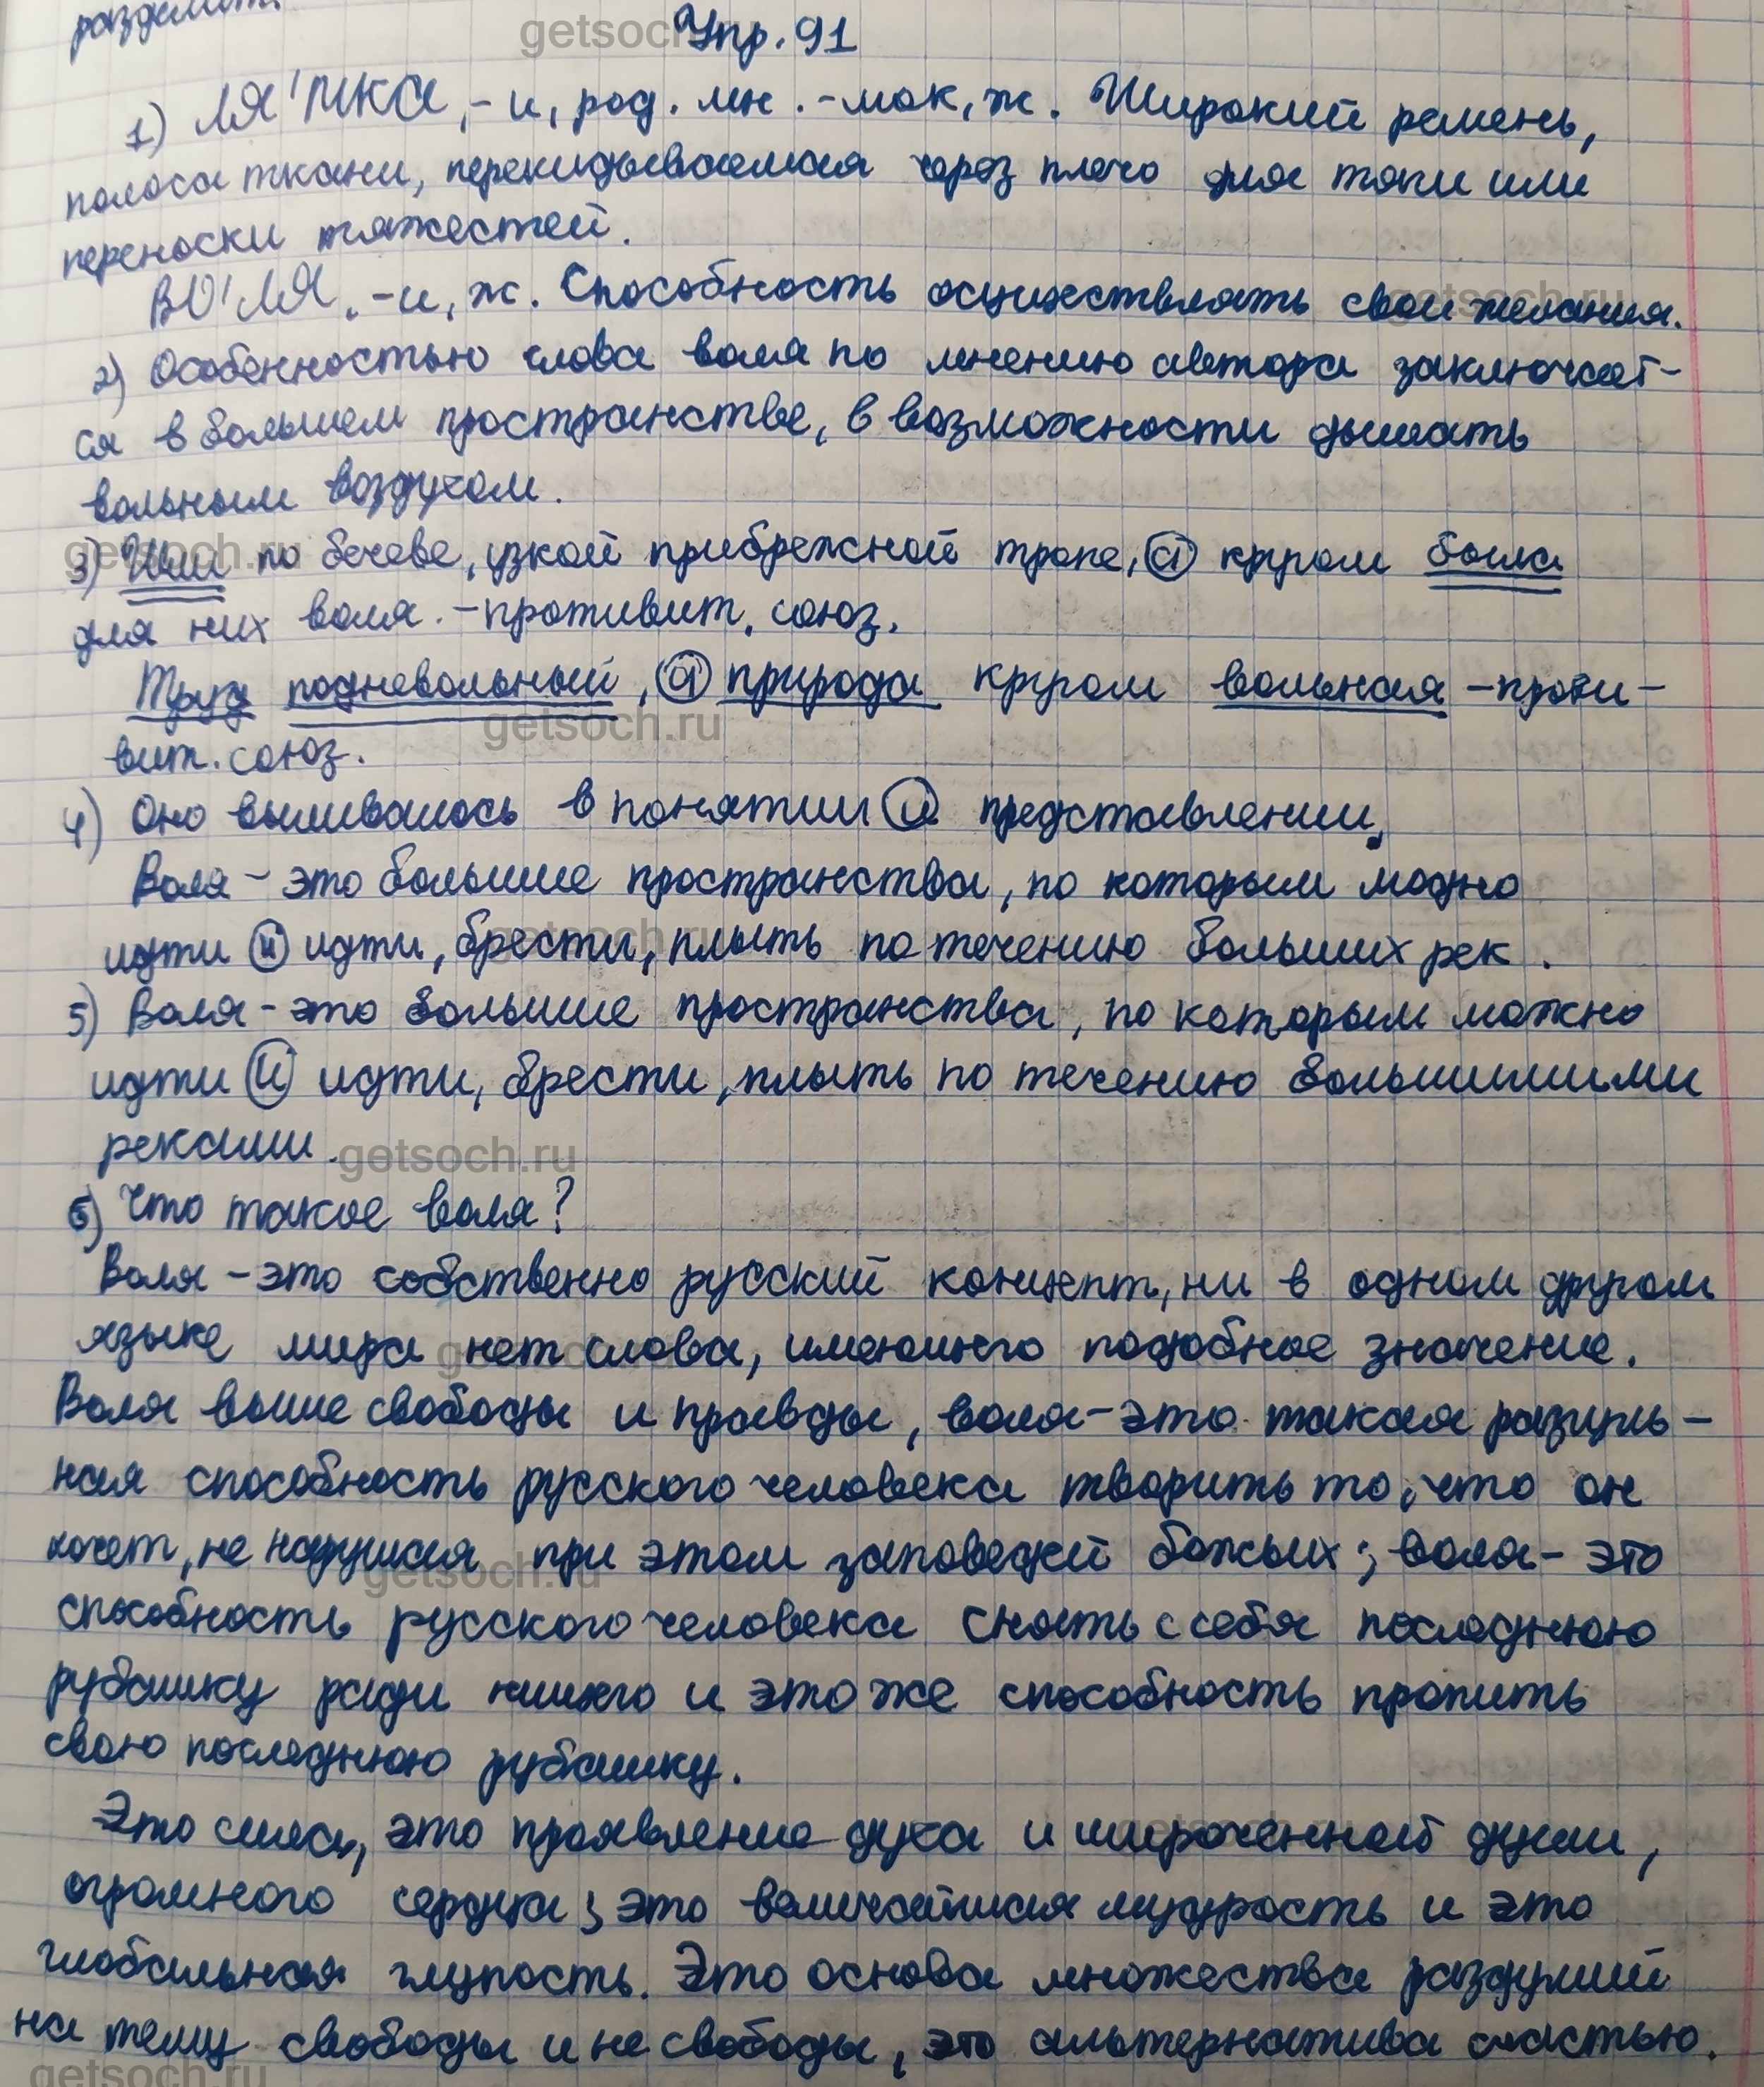 разделит.
Упр. 91
1) ЛЯ'МКА, -и, род. мн. -мок, ж. Широкий ремень,
полоса ткани, перекидываемая через плечо для тяги или
переноски тяжестей.
ВО'ЛЯ, -и, ж. Способность осуществлять свои желания.
2) Особенностью слова воля по мнению автора заключает-
ся в большем пространстве, в возможности дышать
вольным воздухом.
3) Шли по бечеве, узкой прибрежной тропе, а кругом была
для них воля. - противит. союз.
Труд подневольный, а природа кругом вольная - проти-
вит. союз.
4) Оно выливалось в понятии и представлении.
Воля - это большие пространства, по которым модно
идти и идти, брести, плыть по течению больших рек.
5) Воля - это большие пространства, по которым можно
идти и идти, брести, плыть по течению большишими
реками.
6) Что такое воля?
Воля - это собственно русский концепт, ни в одном другом
языке мира нет слова, имеющего подобное значение.
Воля выше свободы и правды, воля - это такая разгуль-
ная способность русского человека творить то, что он
хочет, не нарушая при этом заповедей божьих; воля - это
способность русского человека снять с себя последнюю
рубашку ради нищего и это же способность пропить
свою последнюю рубашку.
Это сила, это проявление духа и широченной души,
огромного сердца; это величайшая мудрость и это
глобальная глупость. Это основа множества раздумий
на тему свободы и не свободы, это альтернатива счастью.
getsoch.ru
getsoch.ru
getsoch.ru
getsoch.ru
getsoch.ru
getsoch.ru
getsoch.ru
getsoch.ru
getsoch.ru
getsoch.ru